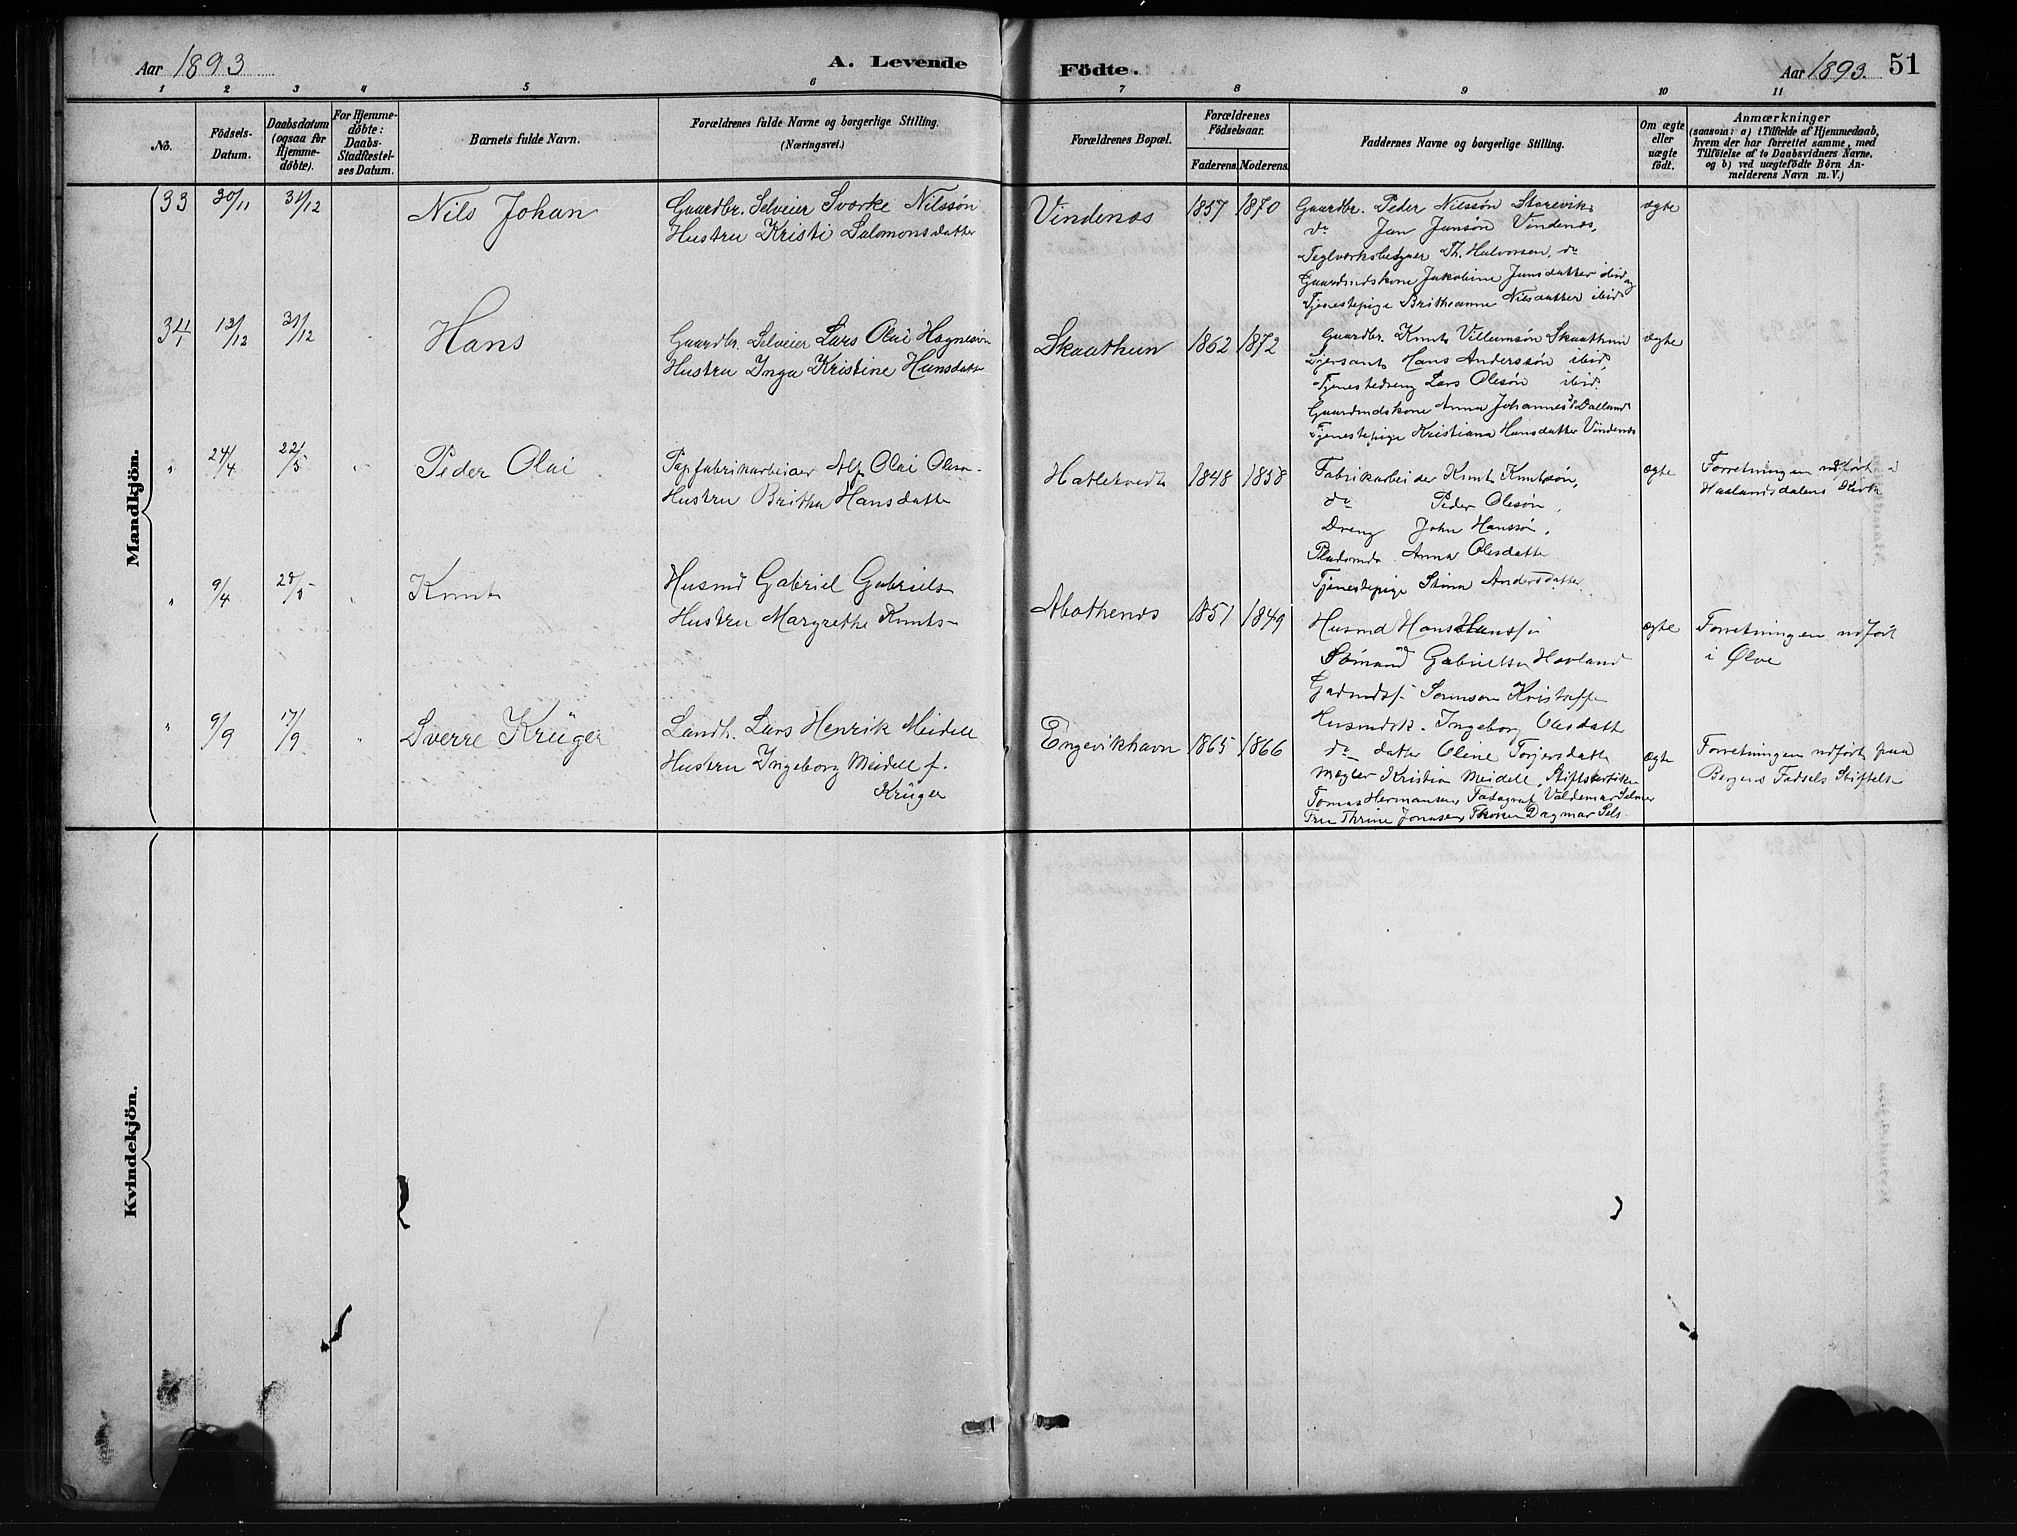 Aar 1893
A. Levende
Födte.
Aar 1893.
51
1 2 3 4 5 6 7 8 9 10 11
No.
Födsels-
Datum.
Daabsdatum
(ogsaa for
Hjemme-
döbte).
For Hjemme-
döbte:
Daabs-
Stadfæstel-
ses Datum.
Barnets fulde Navn.
Forældrenes fulde Navne og borgerlige Stilling.
(Næringsvei.)
Forældrenes Bopæl.
Forældrenes
Födselsaar.
Faderens. Moderens.
Faddernes Navne og borgerlige Stilling.
Om ægte
eller
uægte
födt.
Anmærkninger
(saasom: a) i Tilfælde af Hjemmedaab,
hvem der har forrettet samme, med
Tilföielse af to Daabsvidners Navne.
og b) ved uægtefödte Börn An-
melderens Navn m. V.)
Mandkjön.
33 30/11 31/12 Nils Johan
Gaardbr. Selveier Sværke Nilssøn
Hustru Kristi Salomonsdatter
Vindenæs 1857 1870
Gaardbr. Peder Nilssøn Storevik
do Jan Jansøn Vindenæs,
Teglværksbestyrer Th. Halvorsen, do
Gaardmdskone Jakobine Jansdatter ibid og
Tjenestepige Brithanne Nilsdatter ibid
ægte
34 12/12 31/12 Hans
Gaardbr. Selveier Lars Olai Hognesøn
Hustru Inga Kristine Hansdatt
Skaathun 1862 1872
Gaardbr. Knut Villumsøn Skaathun
Hans Anderssøn ibid,
Tjenestedreng Lars Olesøn ibid.
Gaardmdskone Anna Johannesd Dalland
Tjenestepige Kristiana Hansdatter Vindenæs
ægte
" 24/4 22/5 " Peder Olai
Papfabrikarbeider Alf Olai Olsen
Hustru Britha Hansdatte
Hatletvedt 1848 1858
Fabrikarbeider Knut Knutsøn,
do Peder Olesøn,
Dreng John Hanssøn,
Anna Olesdatte
Tjenestepige Stina Andersdatter
ægte
Forretningen udført i
Haalandsdalens Kirke
" 9/4 28/5 " Knut
Husmd Gabriel Gabriels
Hustru Margrethe Knuts-
1851 1849
Husmd Hans Hanss
Sømand Gabrielsen Havland
Sørensen Kristoffe
Husmdsk. Ingeborg Olesdatt
do datter Oline Torjersdatte
ægte
Forretningen udført
i Ølve
" 9/9 17/9 " Sverre Krüger
Landh. Lars Henrik Meidell
Hustru Ingeborg Meidell f.
Krüger
Engevikhavn 1865 1866
Megler Kristian Meidell,
Tomas Hermansen Valdemar Selmer
Fru Thrine Jonasen Frøken Dagmar
ægte
Forretningen udført paa
Bergens Fødsels Stiftelse
Kvindekjön.